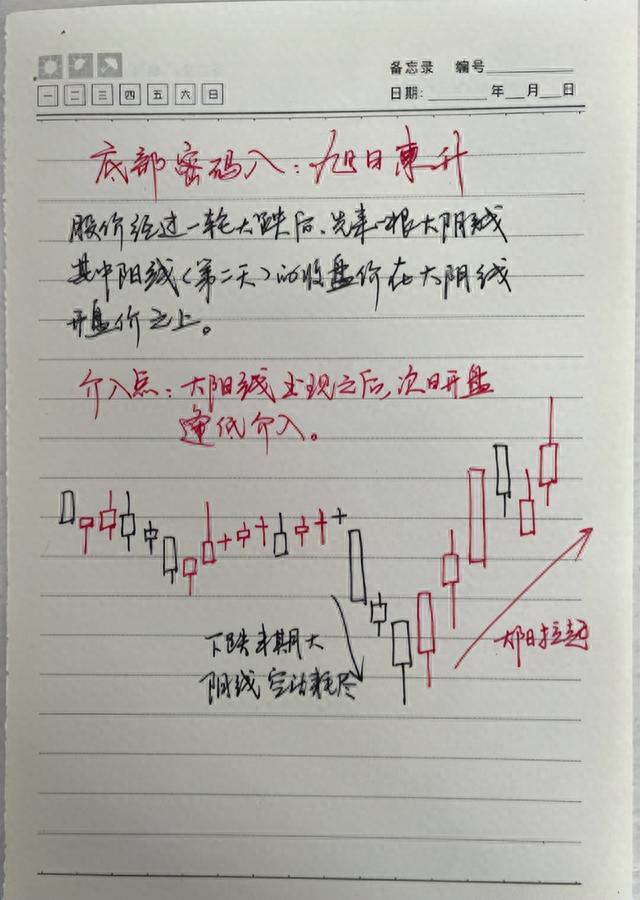 备忘录 编号
一 二 三 四 五 六 日
日期: 年 月 日
底部密码八：旭日東升
股价经过一轮大跌后、先来一根大阴线
其中阳线(第二天)的收盘价在大阴线
开盘价之上。
介入点：大阳线出现之后,次日开盘
逢低介入。
下跌末期大
阴线空头耗尽
大阳拉起